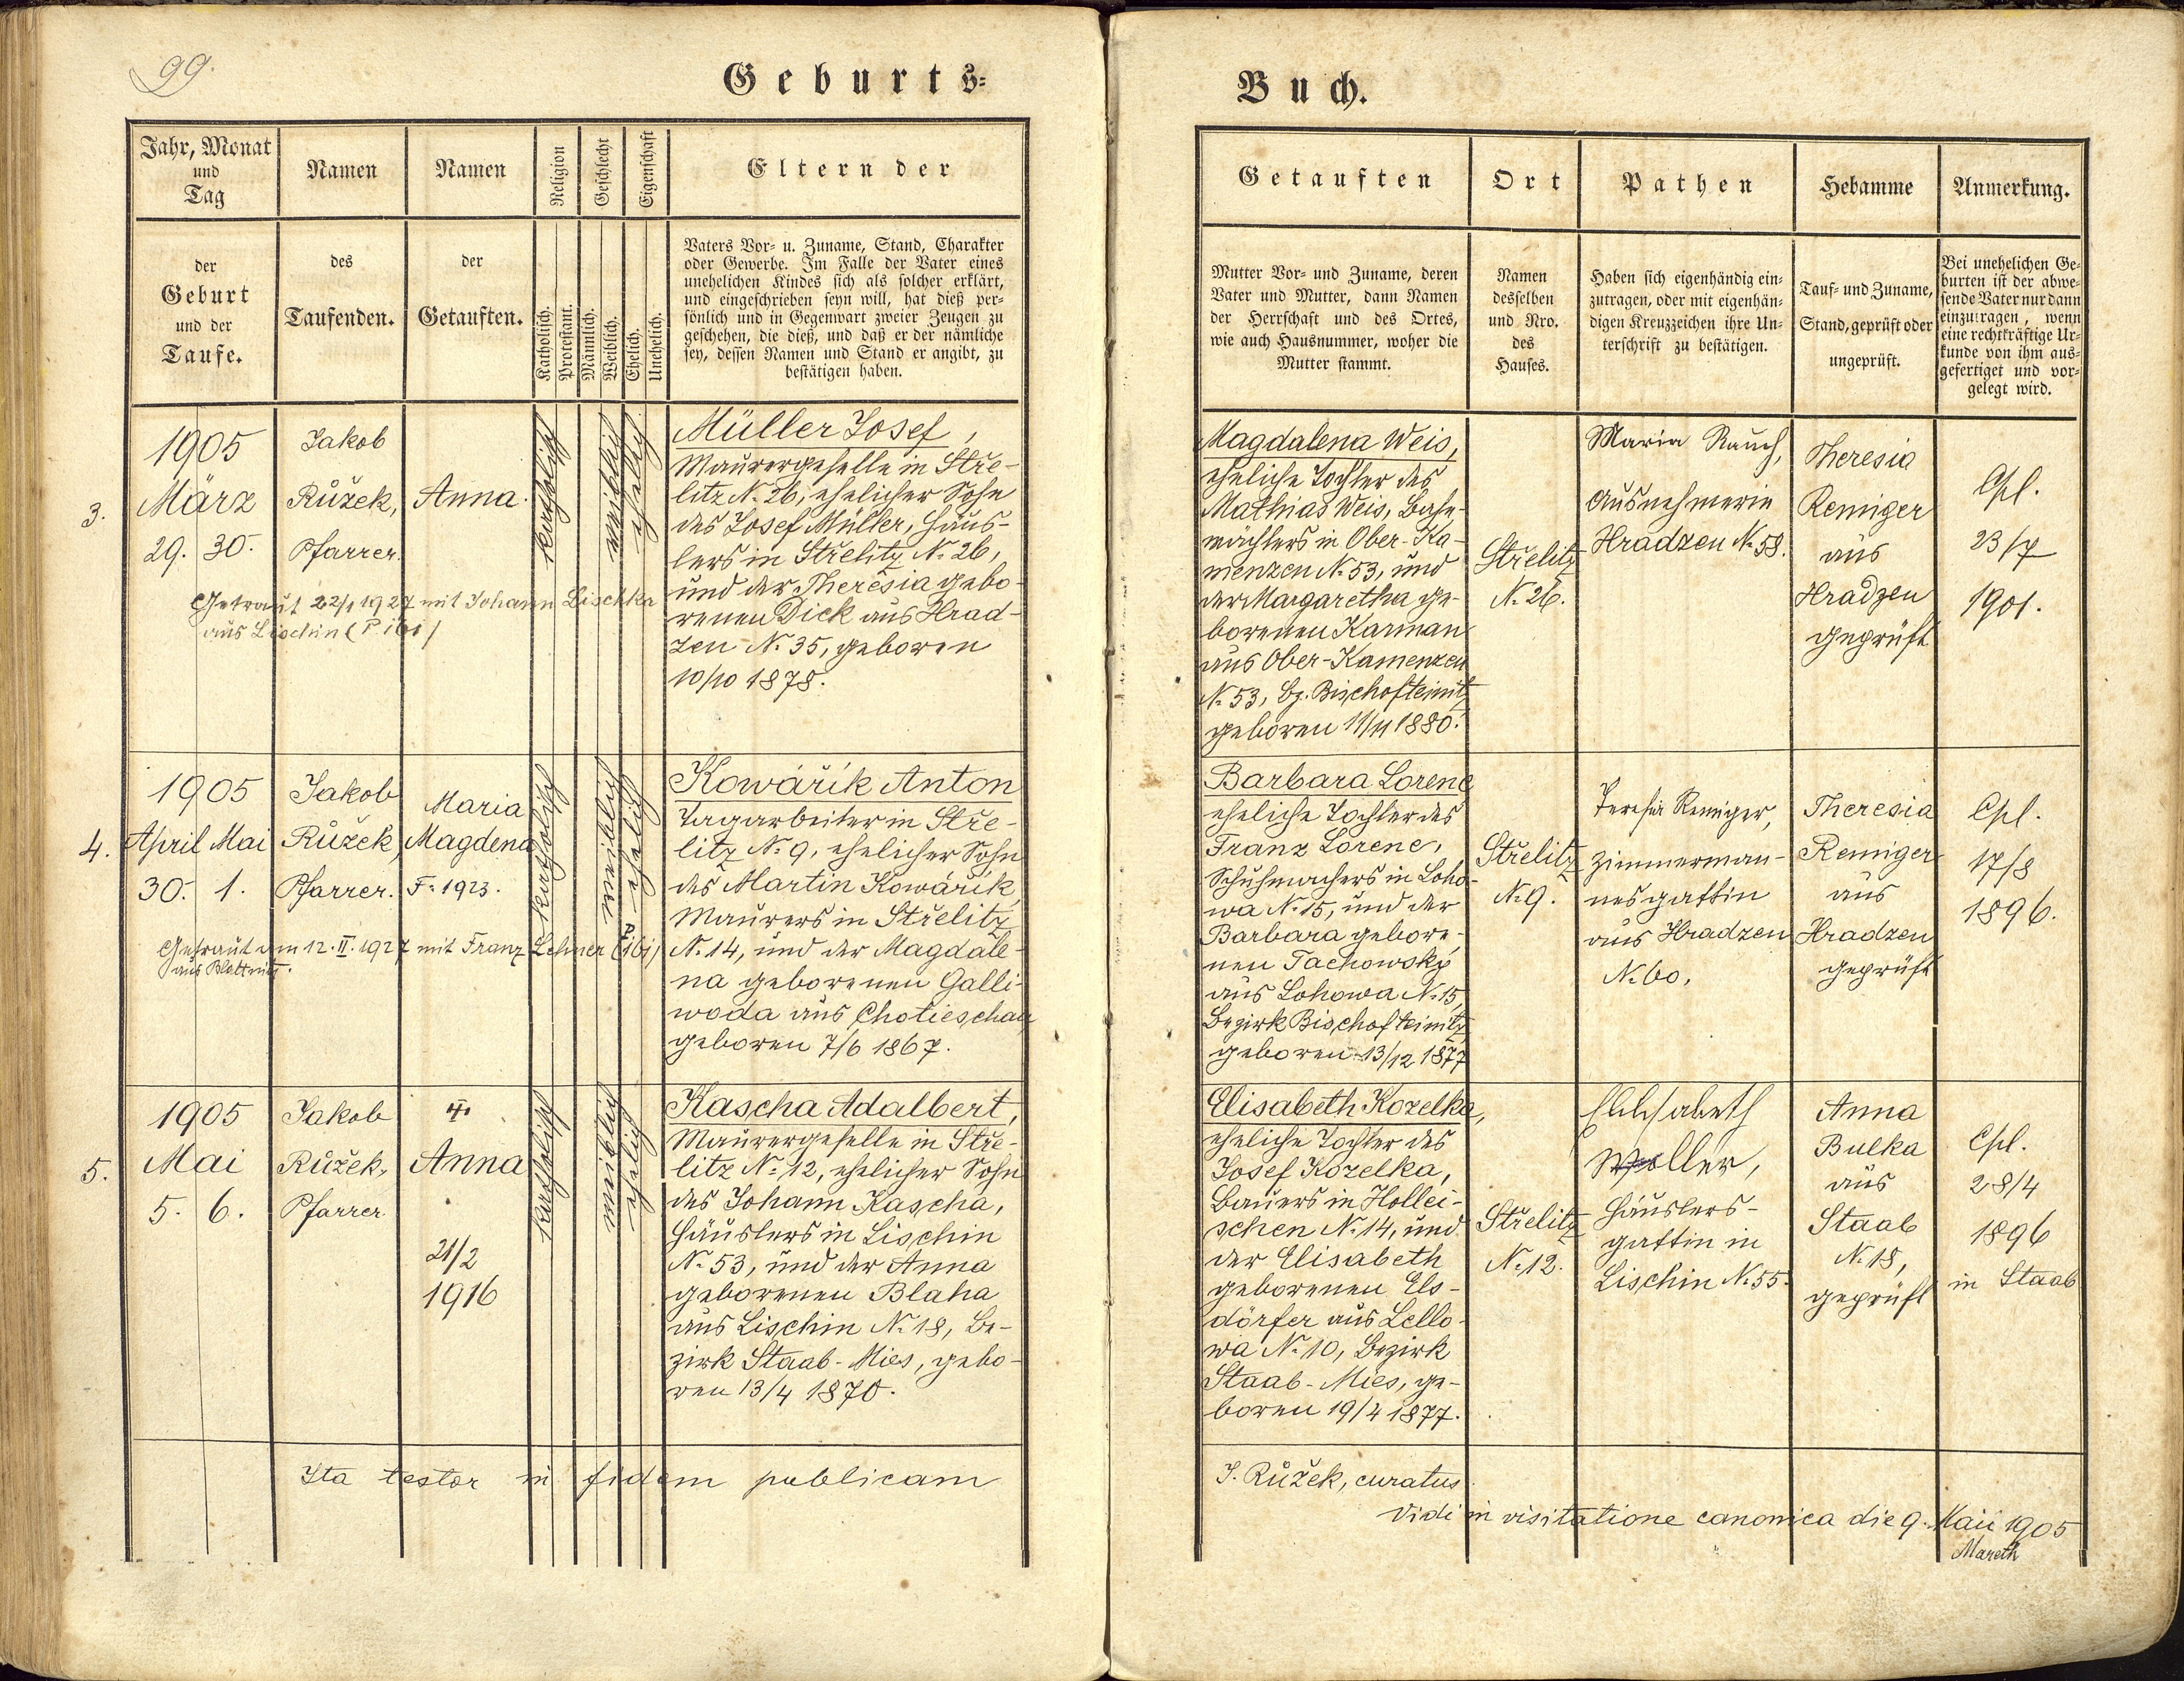 99.
Geburts=
Jahr, Monat
und
Tag
Namen
Namen
Religion
Geschlecht
Eigenschaft
Eltern der
der
Geburt
und der
Taufe.
des
Taufenden.
der
Getauften.
Katholisch.
Protestant.
Männlich.
Weiblich.
Ehelich.
Unehelich.
Vaters Vor= u. Zuname, Stand, Charakter
oder Gewerbe. Im Falle der Vater eines
unehelichen Kindes sich als solcher erklärt,
und eingeschrieben seyn will, hat dieß per=
sönlich und in Gegenwart zweier Zeugen zu
geschehen, die dieß, und daß er der nämliche
sey, dessen Namen und Stand er angibt, zu
bestätigen haben.
3.
1905
März
29. 30.
Jakob
Růžek,
Pfarrer.
Anna.
katholisch
weiblich
ehelich
Müller Josef,
Maurergeselle in Stře-
litz N. 26, ehelicher Sohn
des Josef Müller, Häus-
lers in Střelitz N. 26,
und der Theresia gebo-
renen Dick aus Hrad-
zen N. 35, geboren
10/10 1878.
Getraut 22/1 1927 mit Johann Lischka
aus Lischin (P ibi)
4.
1905
April Mai
30. 1.
Jakob
Růžek,
Pfarrer.
Maria
Magdena
F. 1923.
katholisch
weiblich
ehelich
Kowářík Anton
Tagarbeiter in Stře-
litz N. 9, ehelicher Sohn
des Martin Kowářík,
Maurers in Střelitz
N. 14, und der Magdale-
na geborenen Galli-
woda aus Chotieschau
geboren 7/6 1867.
Getraut am 12. II. 1927 mit Franz Lehner (P ibi)
aus Blattnitz.
5.
1905
Mai
5. 6.
Jakob
Růžek,
Pfarrer.
Anna
21/2
1916
katholisch
weiblich
ehelich
Kascha Adalbert,
Maurergeselle in Stře-
litz N. 12, ehelicher Sohn
des Johann Kascha,
Häuslers in Lischin
N. 53, und der Anna
geborenen Blaha
aus Lischin N. 18, Be-
zirk Staab-Mies, gebo-
ren 13/4 1870.
Ita testor in fidem publicam
Buch.
Getauften
Ort
Pathen
Hebamme
Anmerkung.
Mutter Vor= und Zuname, deren
Vater und Mutter, dann Namen
der Herrschaft und des Ortes,
wie auch Hausnummer, woher die
Mutter stammt.
Namen
desselben
und Nro.
des
Hauses.
Haben sich eigenhändig ein=
zutragen, oder mit eigenhän=
digen Kreuzzeichen ihre Un=
terschrift zu bestätigen.
Tauf= und Zuname,
Stand, geprüft oder
ungeprüft.
Bei unehelichen Ge=
burten ist der abwe=
sende Vater nur dann
einzutragen, wenn
eine rechtkräftige Ur=
kunde von ihm aus=
gefertiget und vor=
gelegt wird.
Magdalena Weis,
eheliche Tochter des
Mathias Weis, Bahn-
wächters in Ober-Ka-
menzen N. 53, und
der Margaretha ge-
borenen Karman
aus Ober-Kamenzen
N. 53, Bz. Bischofteinitz
geboren 11/11 1880.
Střelitz
N. 26.
Maria Rauch,
Ausnehmerin
Hradzen N. 58.
Theresia
Remiger
aus
Hradzen
geprüft
Cpl.
23/7
1901.
Barbara Lorenc
eheliche Tochter des
Franz Lorenc,
Schuhmachers in Loho-
wa N. 15, und der
Barbara gebore-
nen Tachowský
aus Lohowa N. 15,
Bezirk Bischofteinitz
geboren 13/12 1877
Střelitz
N. 9.
Teresia Remiger,
Zimmerman-
nesgattin
aus Hradzen
N. 60.
Theresia
Remiger
aus
Hradzen
geprüft
Cpl.
17/8
1896.
Elisabeth Kozelka,
eheliche Tochter des
Josef Kozelka,
Bauers in Hollei-
schen N. 14, und
der Elisabeth
geborenen Els-
dörfer aus Lello-
wa N. 10, Bezirk
Staab-Mies, ge-
boren 19/4 1877.
Střelitz
N. 12.
Häuslers-
gattin in
Lischin N. 55.
Anna
Bulka
aus
Staab
N. 18,
geprüft
Cpl.
28/4
1896
in Staab
J. Růžek, curatus
Vidi in visitatione canonica die 9. Maii 1905
Mareth